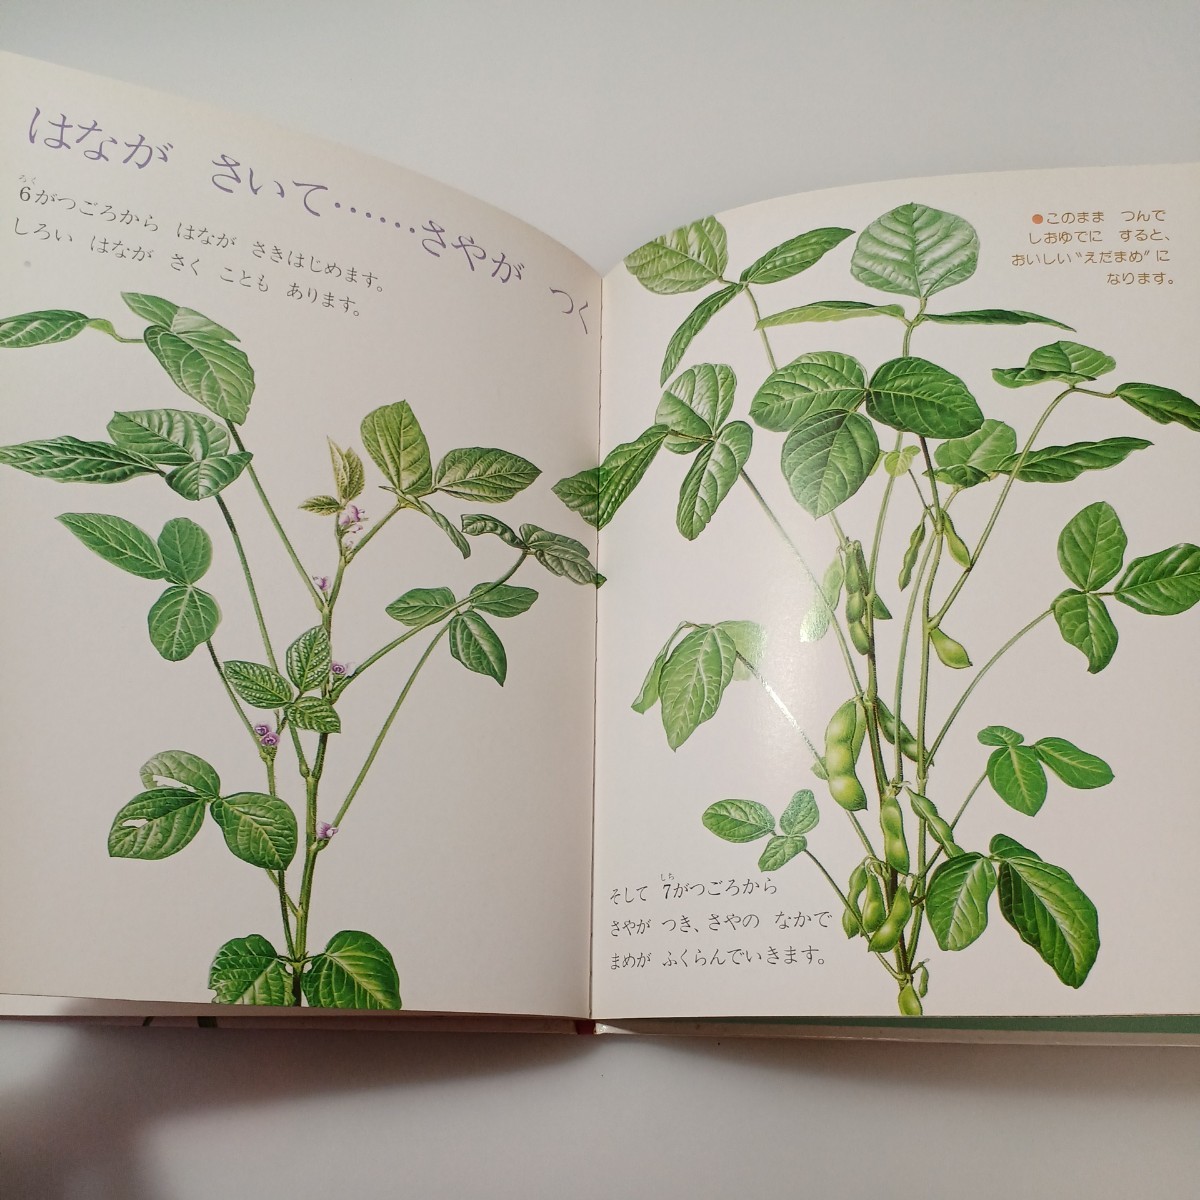 はなが さいて……さやが つく
6がつごろから はなが さきはじめます。
しろい はなが さく ことも あります。
●このまま つんで
しおゆでに すると、
おいしい“えだまめ”に
なります。
そして 7がつごろから
さやが つき、さやの なかで
まめが ふくらんでいきます。